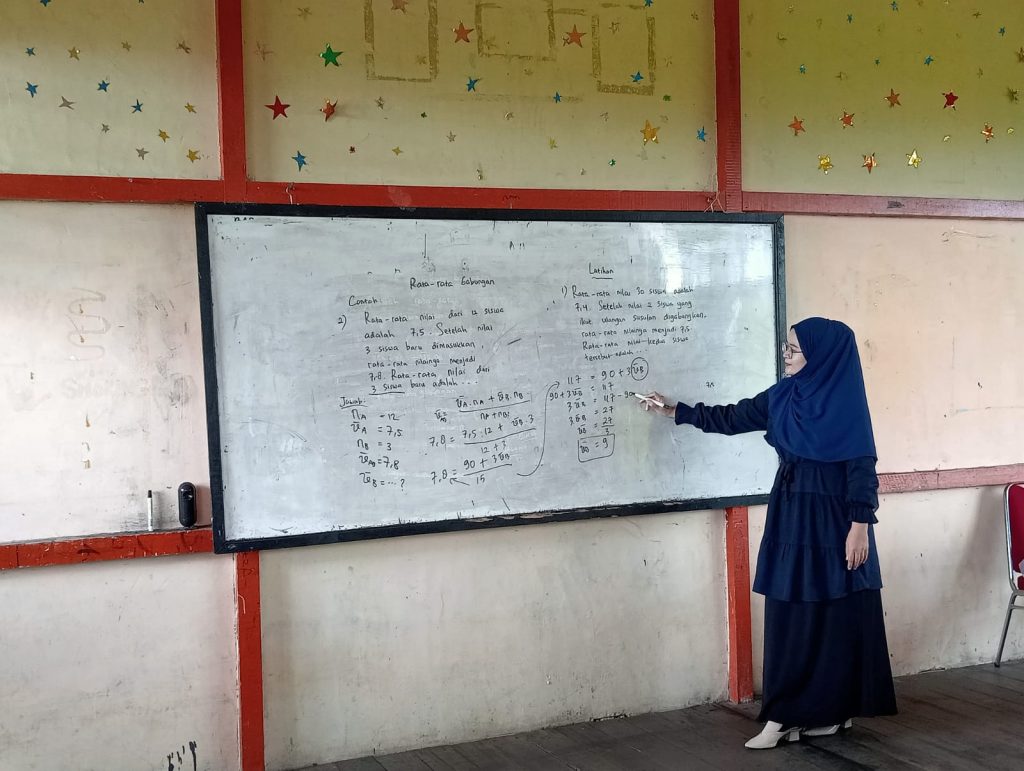 Rata-rata Gabungan
Contoh
2) Rata-rata nilai dari 12 siswa
adalah 7,5. Setelah nilai
3 siswa baru dimasukkan,
rata-rata nilainya menjadi
7,8. Rata-rata nilai dari
3 siswa baru adalah ...
Jawab:
n_A = 12
x̄_A = 7,5
n_B = 3
x̄_AB = 7,8
x̄_B = ... ?
x̄_AB = x̄_A . n_A + x̄_B . n_B
n_A + n_B
7,8 = 7,5 . 12 + x̄_B . 3
12 + 3
7,8 = 90 + 3x̄_B
15
Latihan
1) Rata-rata nilai 30 siswa adalah
7,4. Setelah nilai 2 siswa yang
ikut ulangan susulan digabungkan,
rata-rata nilainya menjadi 7,5
Rata-rata nilai kedua siswa
tersebut adalah ...
117 = 90 + 3x̄_B
90 + 3x̄_B = 117
3x̄_B = 117 - 90
3x̄_B = 27
x̄_B = 27
3
x̄_B = 9